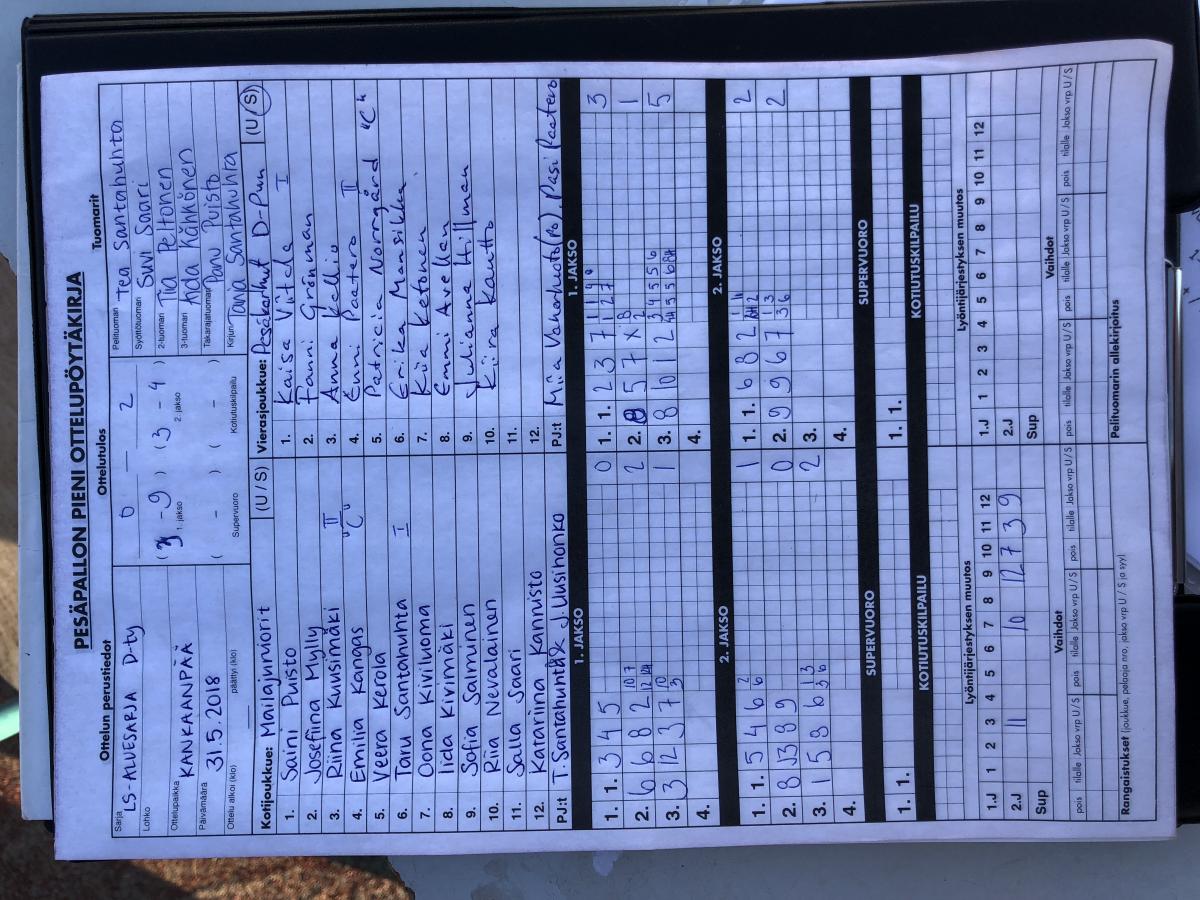 PESÄPALLON PIENI OTTELUPÖYTÄKIRJA
Ottelun perustiedot
Sarja LS-ALUESARJA D-ty
Lohko
Ottelupaikka KANKAANPÄÄ
Päivämäärä 31.5.2018
Ottelu alkoi (klo) päättyi (klo)
Ottelutulos
0 — 2
(3 - 9) (3 - 4)
1. jakso 2. jakso
( - ) ( - )
Supervuoro Kotiutuskilpailu
Tuomarit
Pelituomari Tea Santahuhta
Syöttötuomari Suvi Saari
2-tuomari Tia Peltonen
3-tuomari Ada Kähkönen
Takarajatuomari Panu Puisto
Kirjuri Tanja Santahuhta
Kotijoukkue: Mailajuniorit (U / S)
1. Saini Puisto
2. Josefiina Mylly
3. Riina Kuusimäki II
4. Emilia Kangas "C"
5. Veera Kerola
6. Taru Santahuhta I
7. Oona Kiviluoma
8. Iida Kivimäki
9. Sofia Salminen
10. Riia Nevalainen
11. Salla Saari
12. Katariina Kannisto
PJ:t T. Santahuhta & J. Uusihonko
Vierasjoukkue: Pesäkarhut D-Pun (U / S)
1. Kaisa Viitala I
2. Fanni Grönman
3. Anna Kallio
4. Enni Paatero II
5. Patricia Norrgård "C"
6. Erika Mansikka
7. Kiia Ketonen
8. Emmi Avellan
9. Julianna Hillman
10. Kiira Kautto
11.
12.
PJ:t Mia Vanhatuoto (ps), Pasi Paatero
1. JAKSO
1. 1. 3 4 5 0
2. 6 6 8 2 2
3. 3 12 3 7 1
4.
1. JAKSO
1. 1. 2 3 7 3
2. 8 5 7 X 1
3. 8 10 1 2 5
4.
2. JAKSO
1. 1. 5 4 6 1
2. 8 13 8 9 0
3. 1 5 8 6 2
4.
2. JAKSO
1. 1. 6 8 2 2
2. 9 9 6 7 2
3.
4.
SUPERVUORO
1. 1.
SUPERVUORO
1. 1.
KOTIUTUSKILPAILU
KOTIUTUSKILPAILU
Lyöntijärjestyksen muutos
1 2 3 4 5 6 7 8 9 10 11 12
1.J
2.J 11 10 12 7 3 9
Sup
Lyöntijärjestyksen muutos
1 2 3 4 5 6 7 8 9 10 11 12
1.J
2.J
Sup
Vaihdot
pois tilalle Jakso vrp U / S pois tilalle Jakso vrp U / S pois tilalle Jakso vrp U / S
Vaihdot
pois tilalle Jakso vrp U / S pois tilalle Jakso vrp U / S pois tilalle Jakso vrp U / S
Rangaistukset (joukkue, pelaaja nro, jakso vrp U / S ja syy)
Pelituomarin allekirjoitus